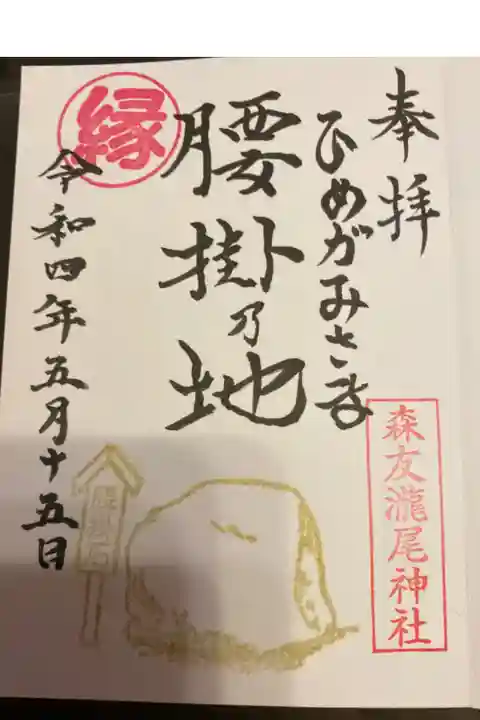 奉拝
ひめがみさま
腰掛乃地
縁
令和四年五月十五日
森友瀧尾神社
腰掛石